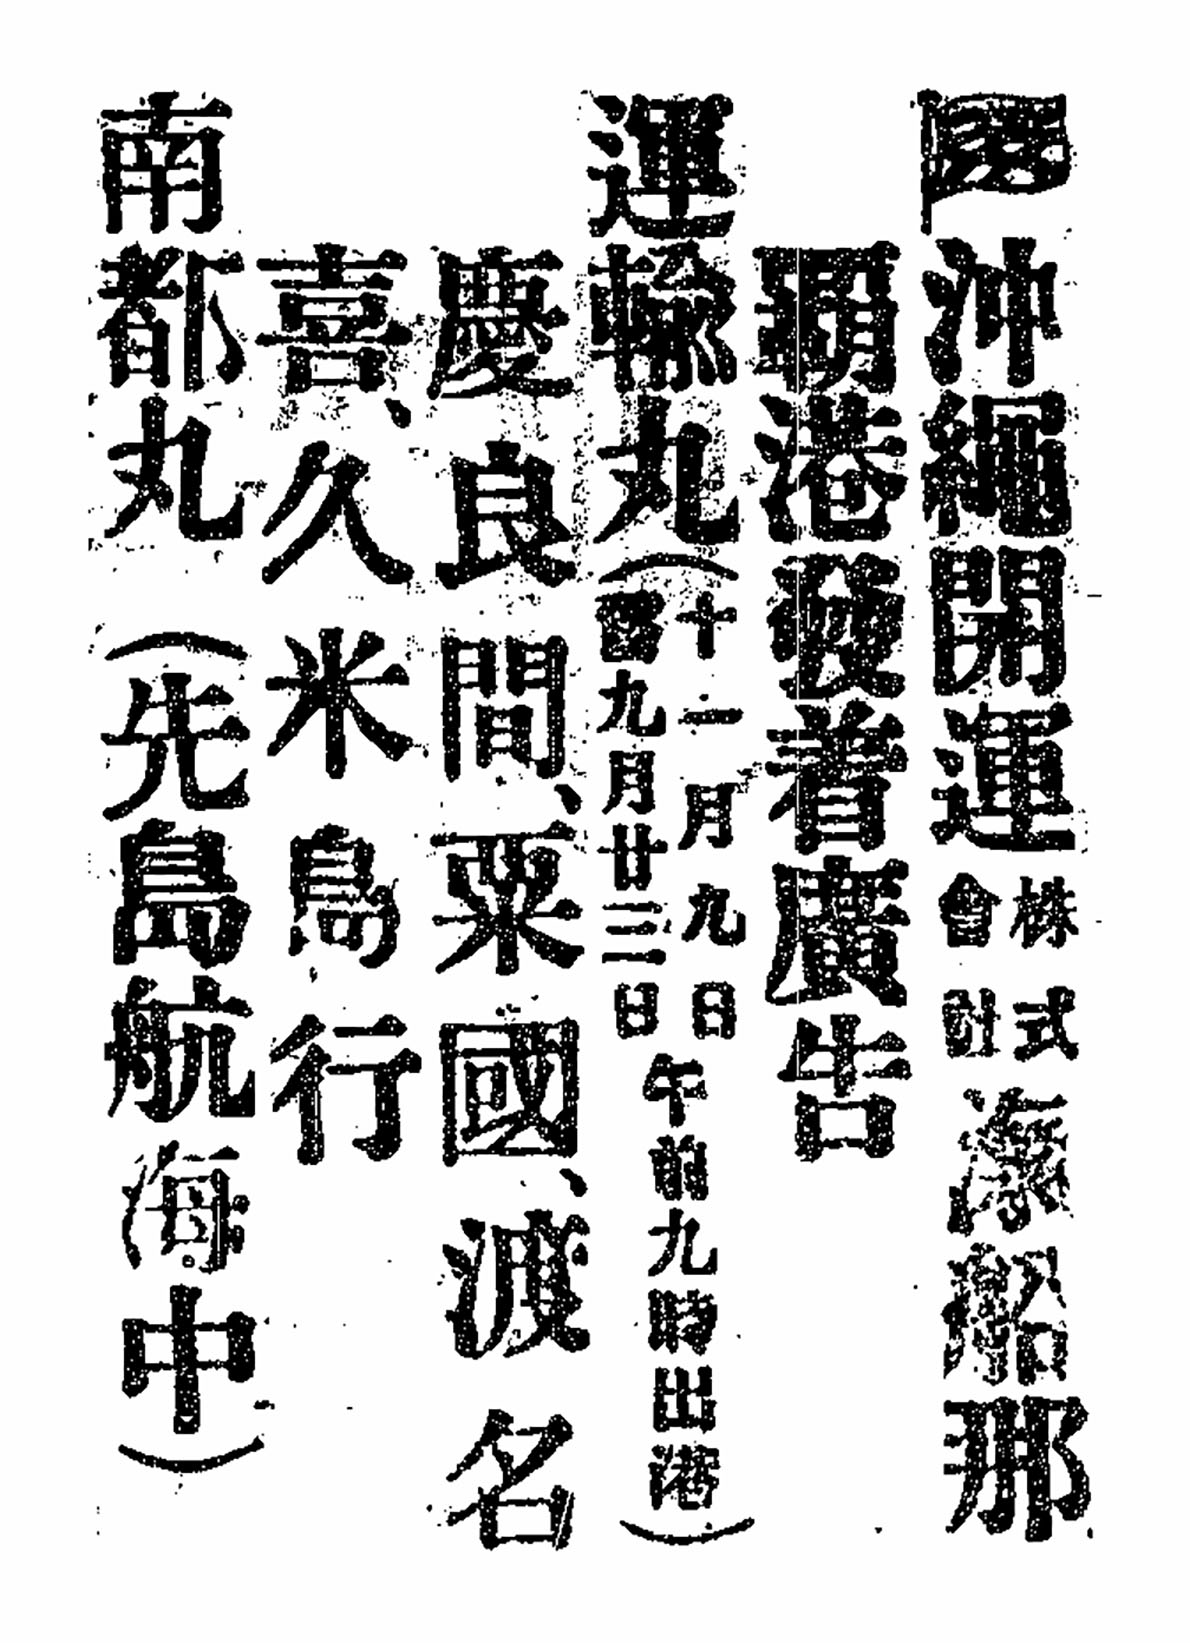 沖繩開運株式會社滊船那
覇港發着廣告
運輸丸(十一月九日舊九月廿三日午前九時出港)
慶良間、粟國、渡名
喜、久米島行
南都丸(先島航海中)